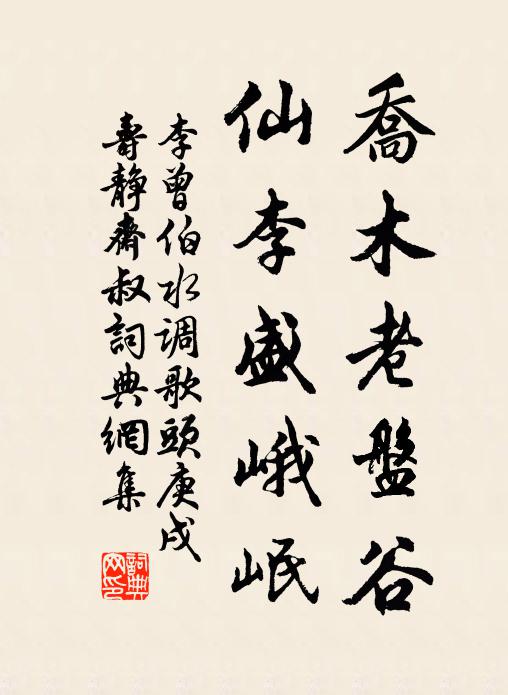 喬木老盤谷
仙李盛峨岷
李曾伯水调歌頭庚戌
壽静齋叔詞典網集
詞典网印